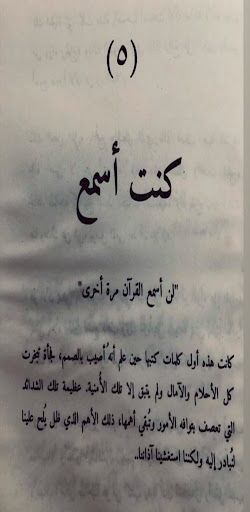 (٥)
كنت أسمع
"لن أسمع القرآن مرة أخرى"
كانت هذه أول كلمات كتبها حين علم أنه أُصيب بالصمم، فجأة تبخرت
كل الأحلام والآمال ولم يتبق إلا تلك الأُمنية. عظيمة تلك الشدائد
التي تعصف بتوافه الأمور وتُبقي أهمها، ذلك الأهم الذي ظل يُلح علينا
لنُبادر إليه ولكننا استغشينا آذاننا..